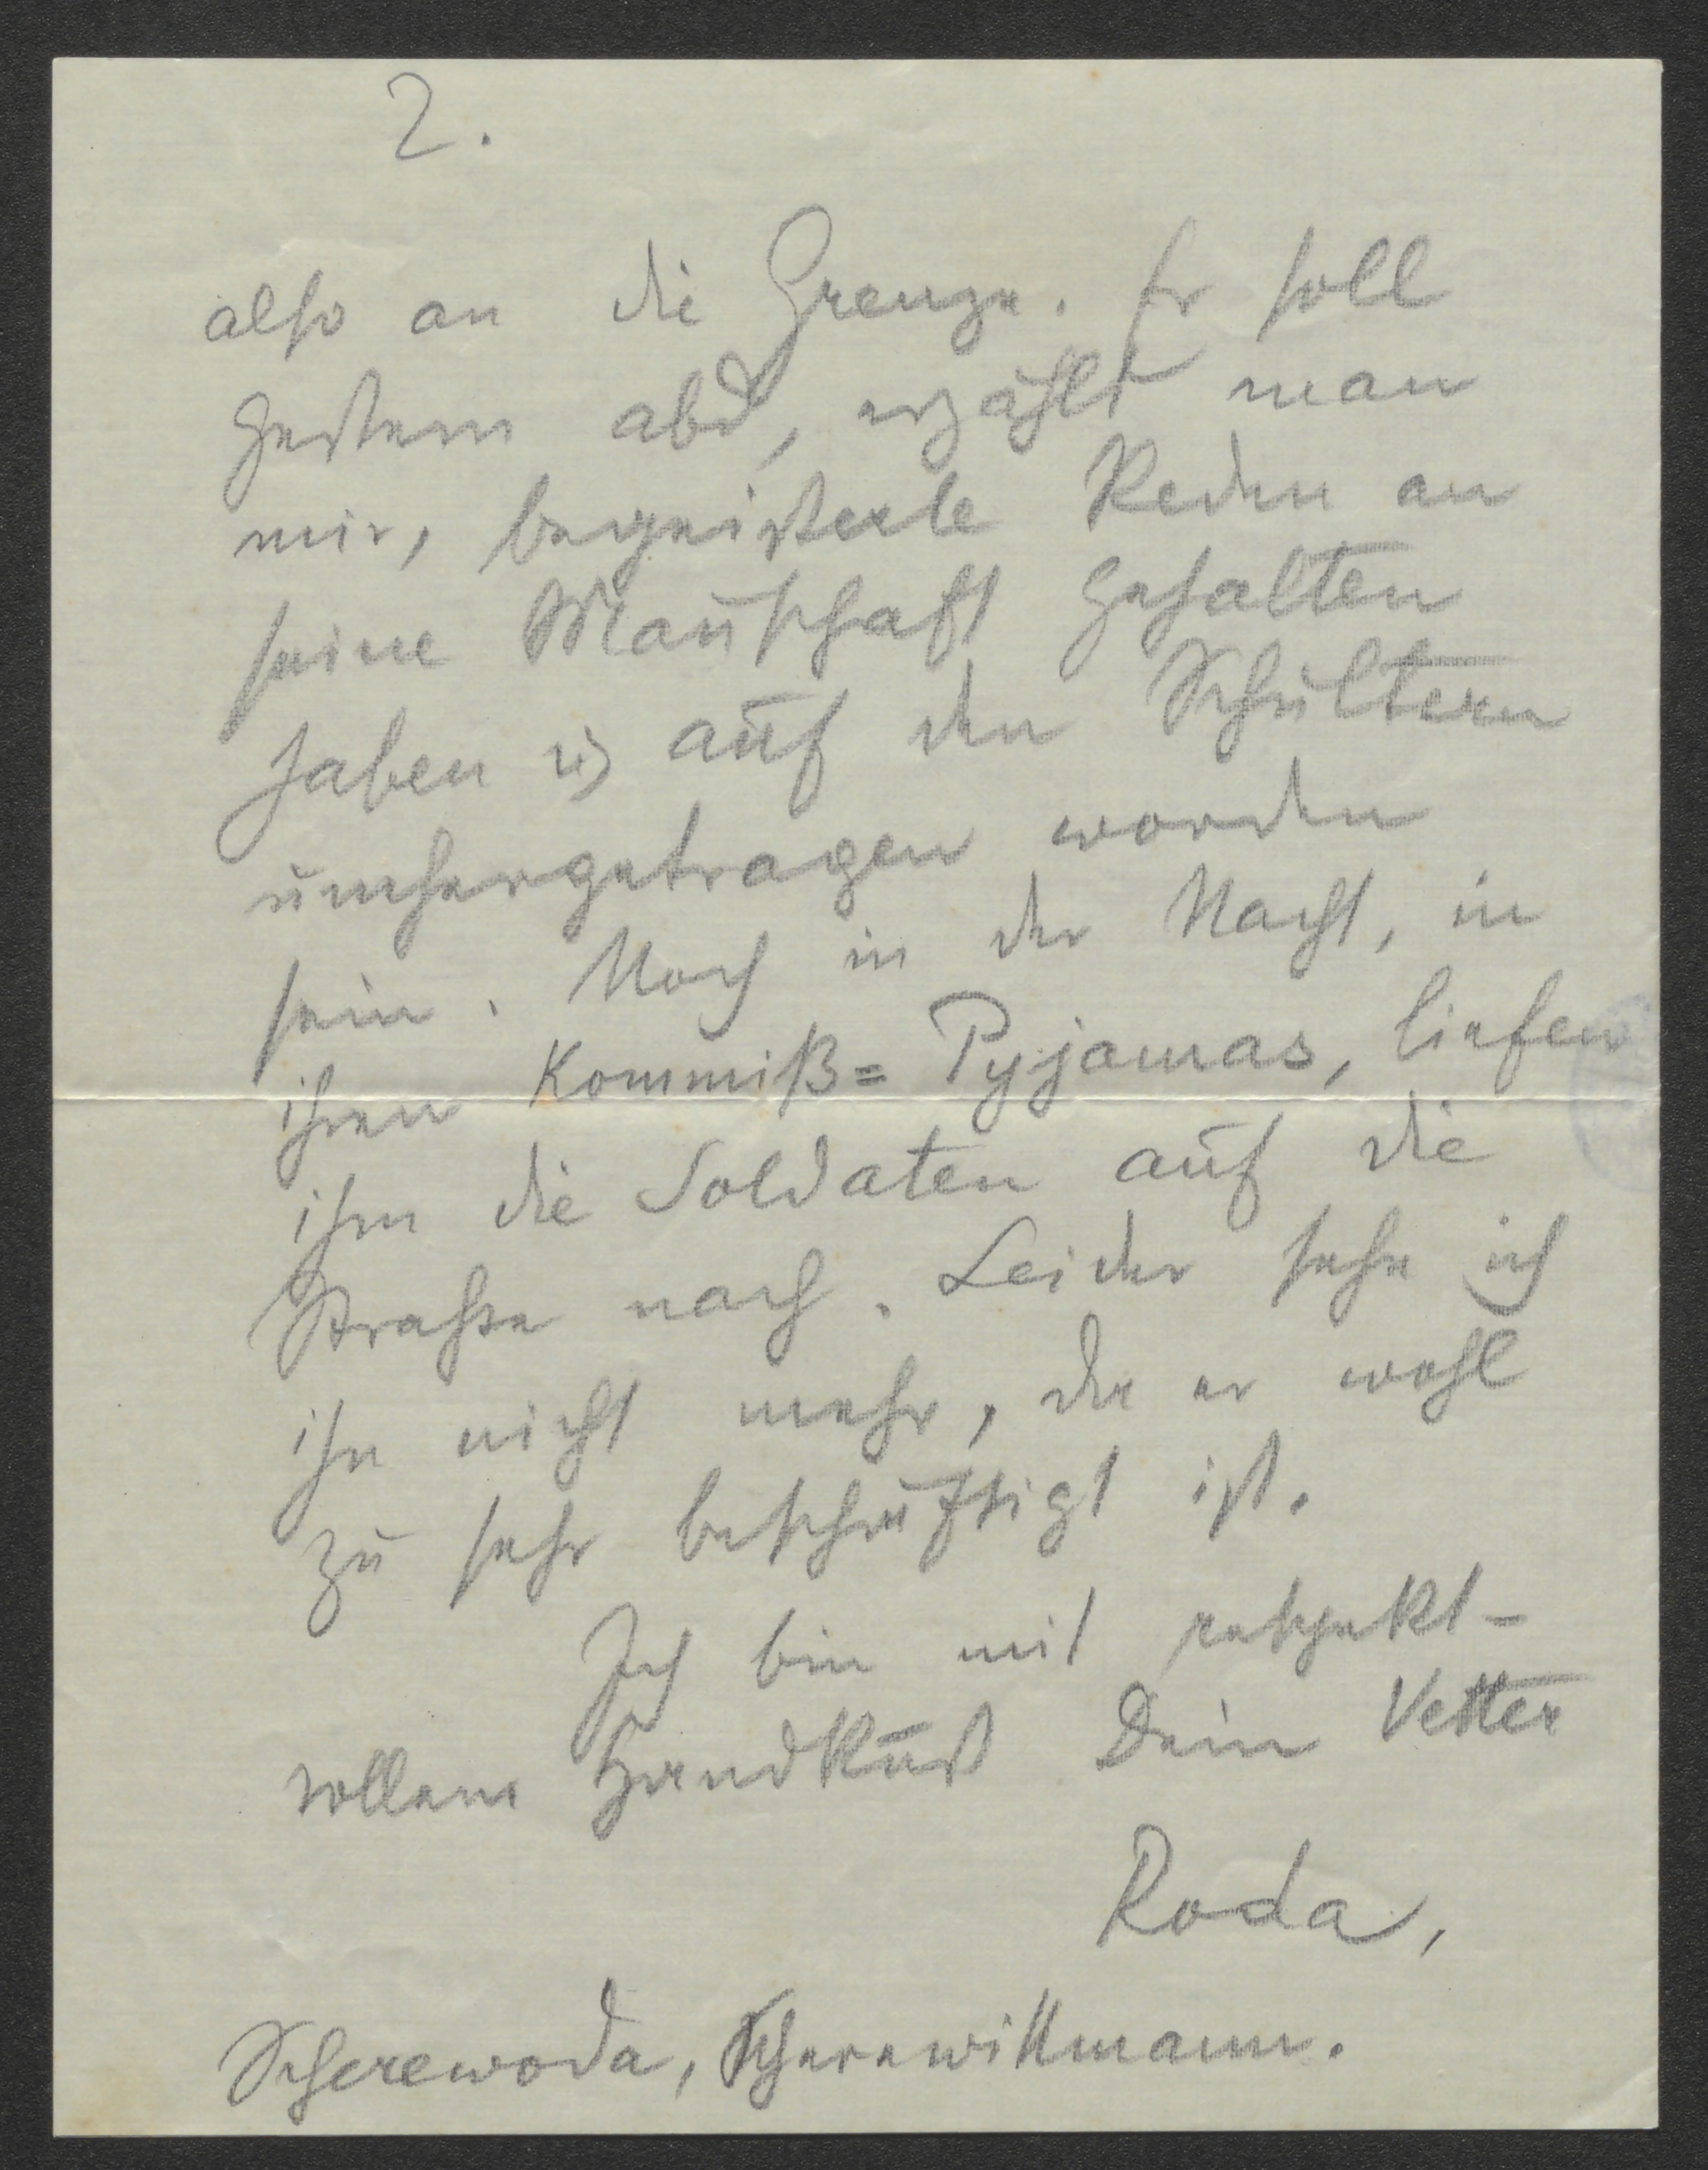 2.
also an die Grenze. Er soll
gestern abd, erzählt man
mir, begeisterte Reden an
seine Mannschaft gehalten
haben u. auf den Schultern
umhergetragen worden
sein. Noch in der Nacht, in
ihren Kommiß= Pyjamas, liefen
ihm die Soldaten auf die
Strasse nach. Leider sehe ich
ihn nicht mehr, da er wohl
zu sehr beschäftigt ist.
Ich bin mit respekt-
vollem Handkuß Dein Vetter
Roda,
Scherewoda, Scherewittmann.